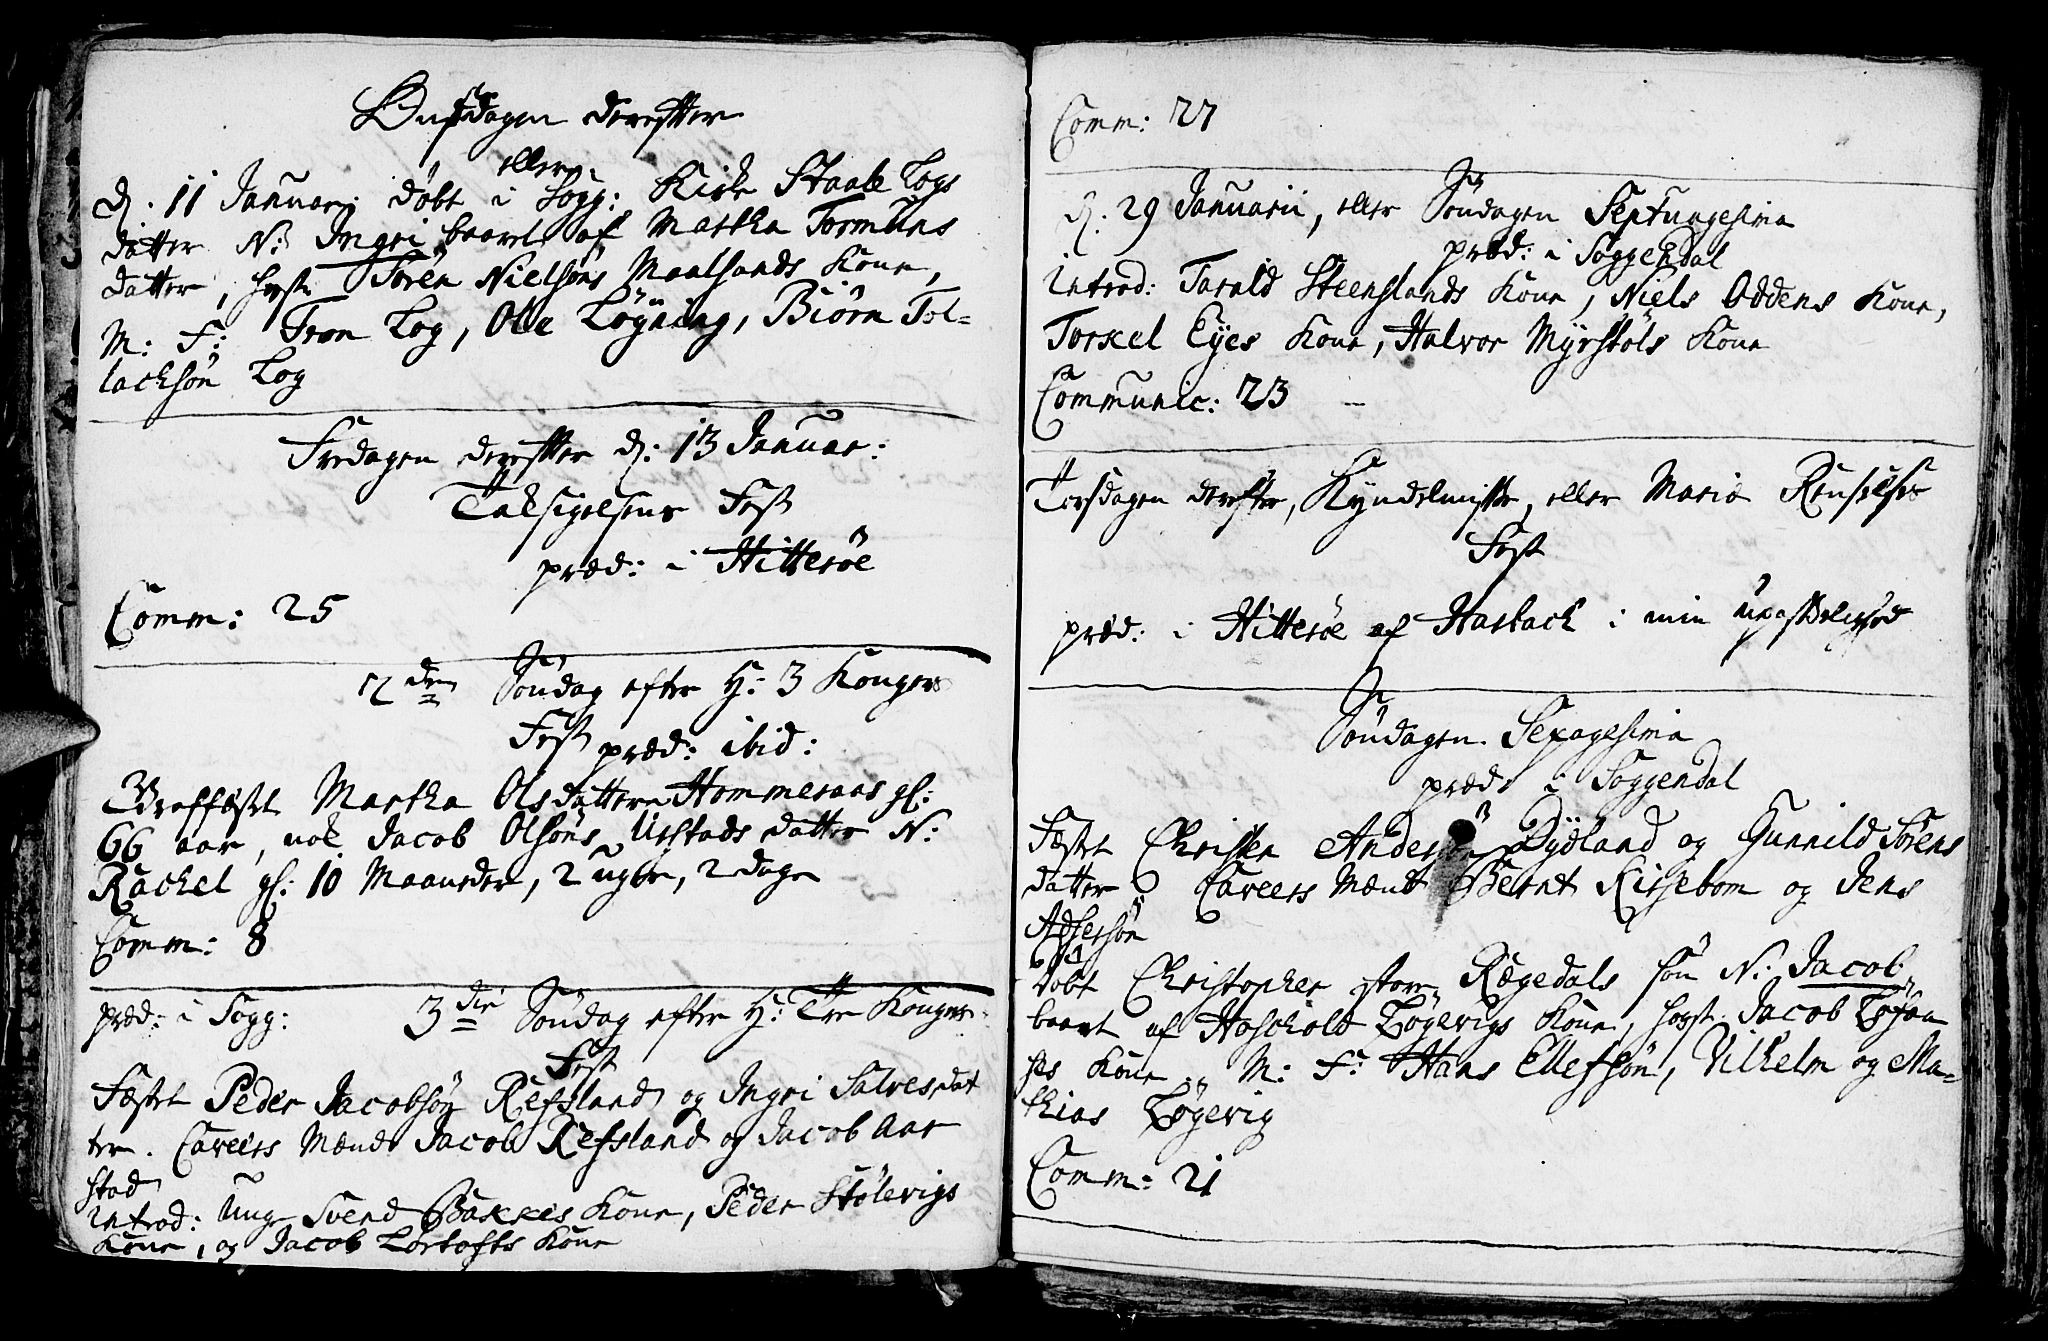 Onsdagen derefter
eller
d. 11 Januar: döbt i Sogg: Kirke Staale Logs
datter N: Ingri baaret af Martha Tormuns
datter, host: Sören Nielsöns Maalsands Kone,
M: F: Tron Log, Ole Löyning, Biörn Tol-
lacksön Log
Fredagen derefter d: 13 Januar:
Taksigelsens Fest
præd: i Hitteröe
Comm: 25
2den Söndag efter H: 3 Kongers
Fest præd: ibid:
Graffæstet Martha Olsdatter Hommeraas gl:
66 aar, nok Jacob Olsöns Urstads datter N:
Rachel gl: 10 Maaneder, 2 uger, 2 dage
Comm: 8
præd: i Sogg: 3die Söndag efter H: Tre Kongers
Fest
Fæstet Peder Jacobsön Refsland og Ingri Salvesdat
ter. Caveers Mænd Jacob Refsland og Jacob Aar
stad
introd: Unge Svend Bakkes Kone, Peder Stölevigs
Kone, og Jacob Lortofts Kone
Comm: 27
d. 29 Januarii, eller Söndagen Septuagesima
præd: i Soggendal
introd: Tarald Steenslands Kone, Niels Oddens Kone,
Torkel Eyes Kone, Halvor Myrstöls Kone
Communic: 23
Torsdagen derefter, Kyndelmisse, eller Mariæ Renselses
Fest
præd: i Hitteröe af Harback i min
Söndagen Sexagesima
præd: i Soggendal
Fæstet Christen Andersön Dydland og Gunnild Sörens
datter Caveers Mænd Bernt Kirsebom og Jens
Adsersön
döbt Christopher store Rægedals sön N: Jacob
baaret af Hoscholt Lögevigs Kone, host: Jacob
ses Kone M: F: Hans Ellefsön, Vilhelm og Ma-
thias Lögevig
Comm: 21